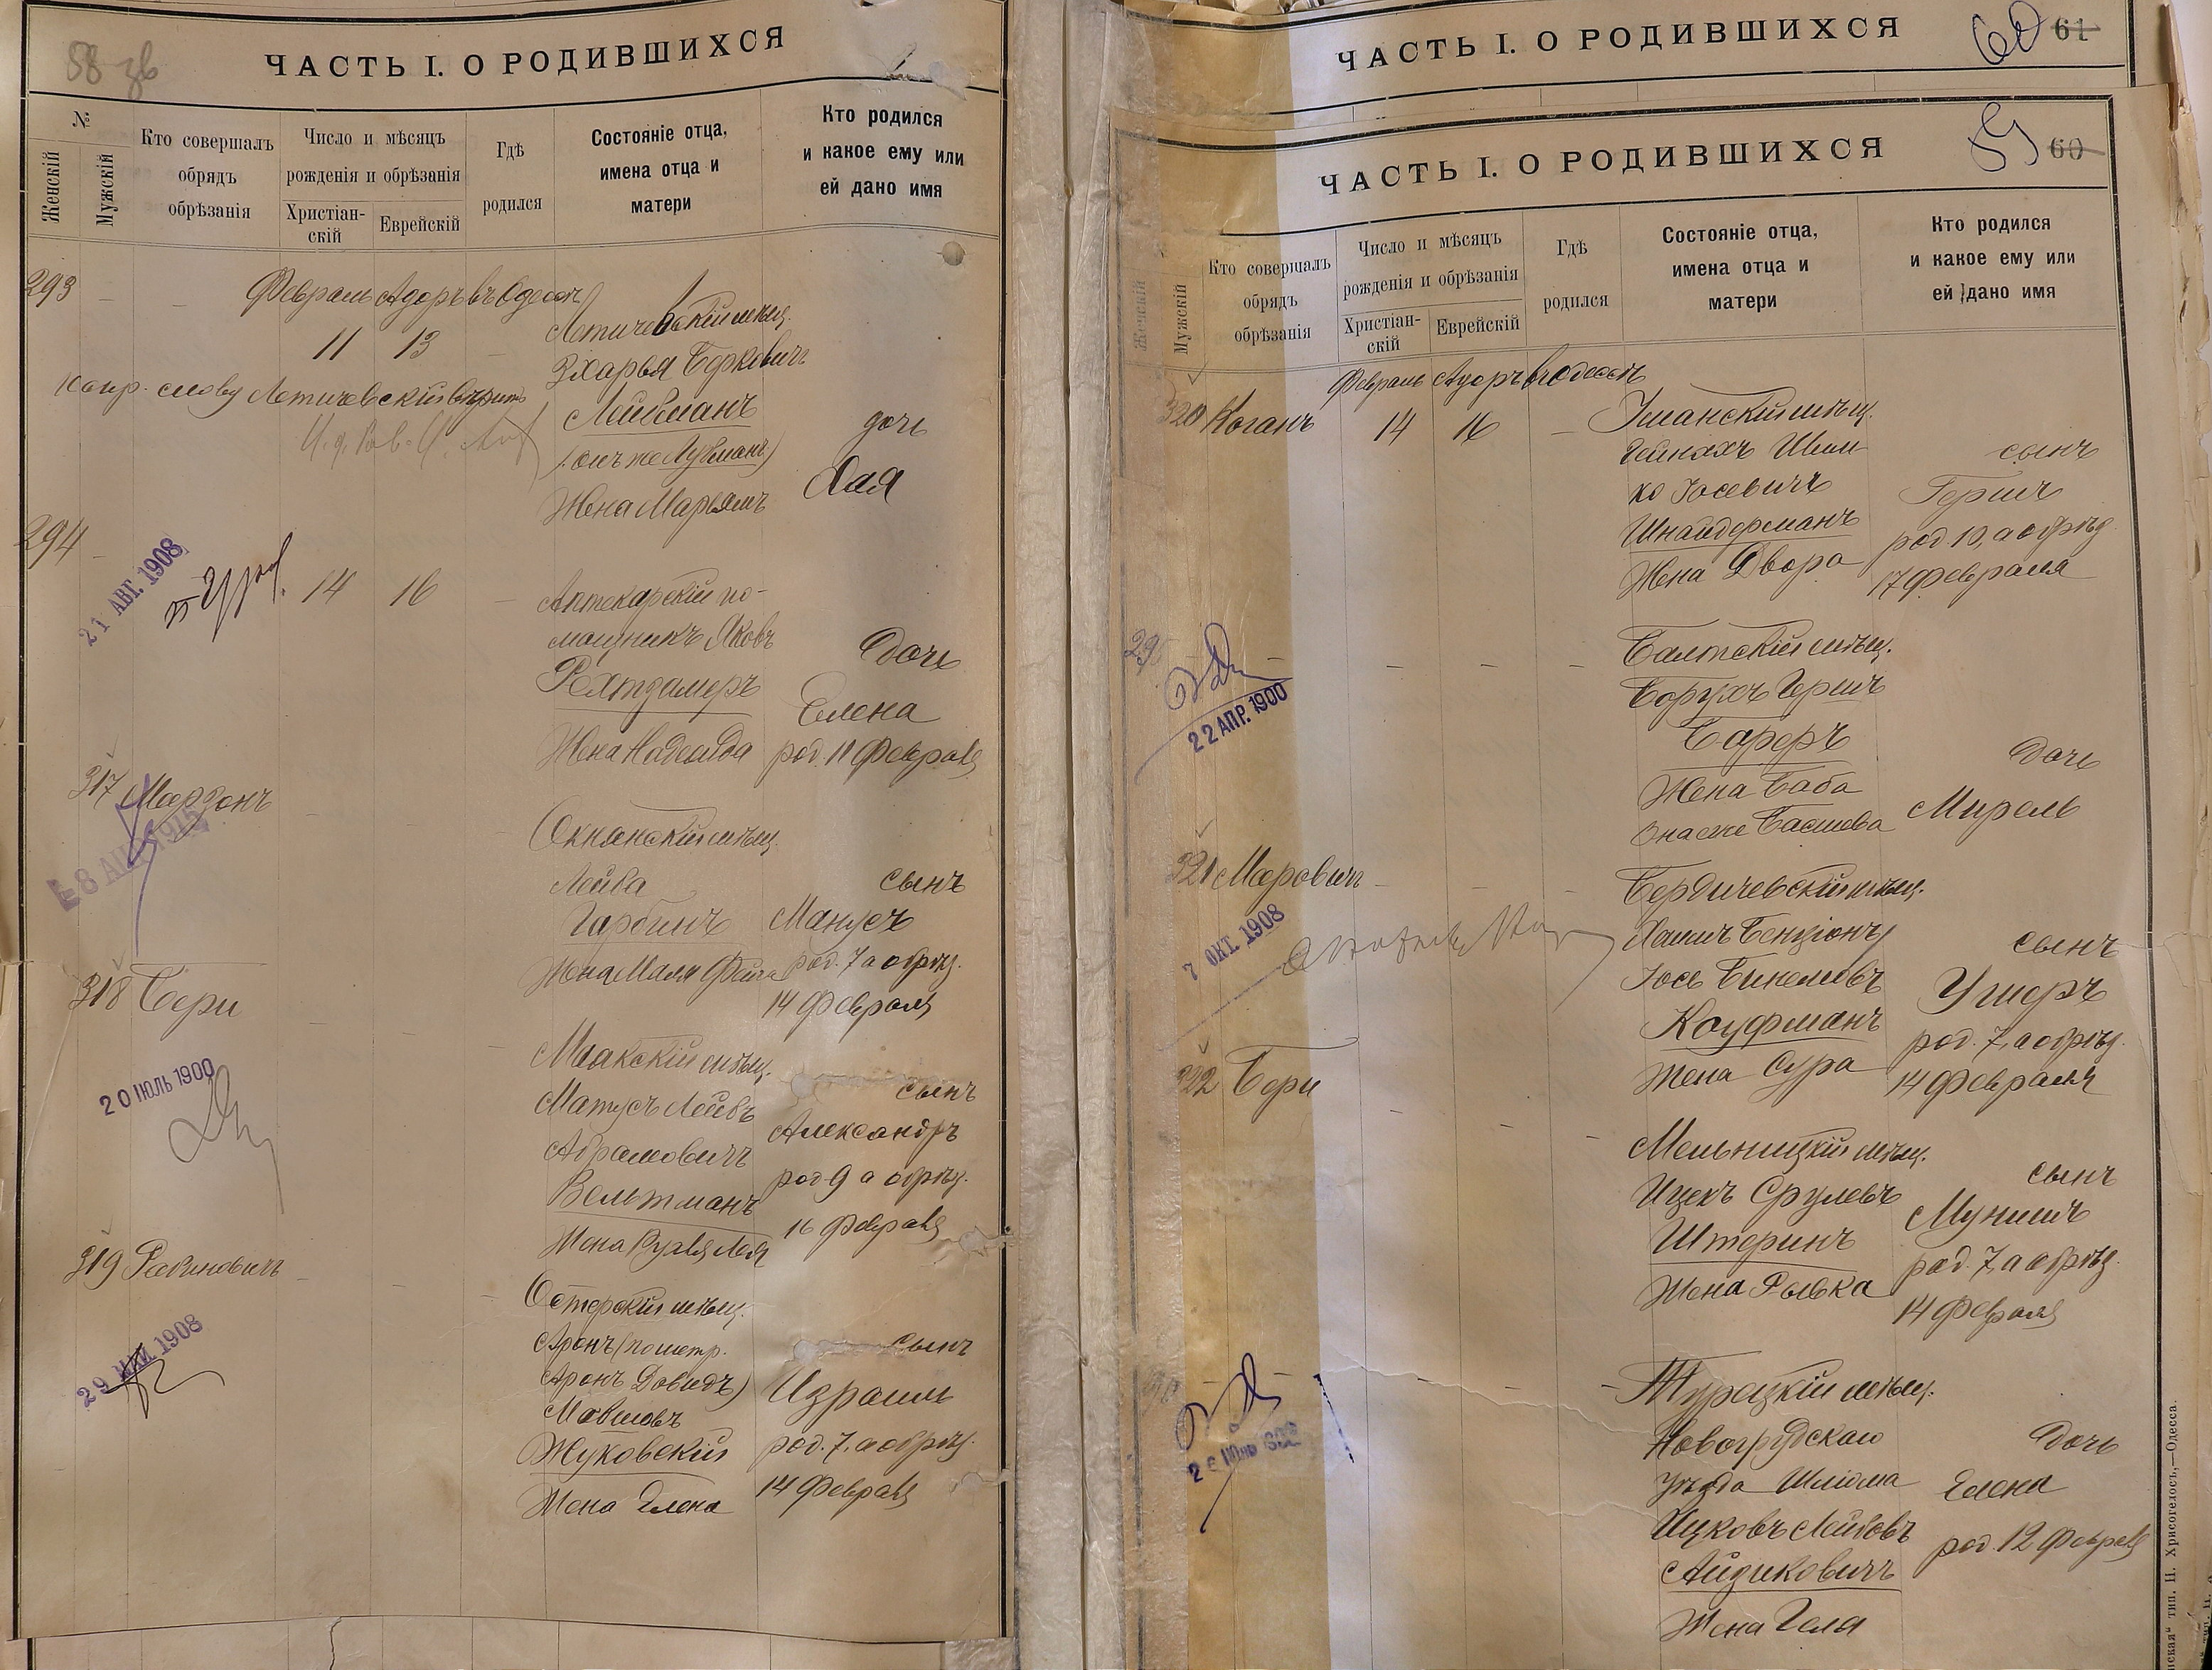 58 зв
ЧАСТЬ I. О РОДИВШИХСЯ
№
Женскій
Мужскій
Кто совершалъ
обрядъ
обрѣзанія
Число и мѣсяцъ
рожденія и обрѣзанія
Христіан-
скій
Еврейскій
Гдѣ
родился
Состояніе отца,
имена отца и
матери
Кто родился
и какое ему или
ей дано имя
293
Февраль Адоръ въ Одессѣ
11 13
Летичевскій мѣщ.
Зхарья Берковичъ
Лейвманъ
Жена Марьямъ
дочь
Хая
294
21 АВГ. 1908
14 16
Аптекарскій по-
мощникъ Яковъ
Рехтзамеръ
Жена Надежда
Дочь
Елена
род. 11 Февраля
317 Мардонъ
Окнянскій мѣщ.
Лейва
Гарбинъ
Жена Маля Фейга
сынъ
Манусъ
род. 7 а обрѣз.
14 Февраля
318 Бери
20 ІЮЛЬ 1900
Маякскій мѣщ.
Матусъ Лейбъ
Абрамовичъ
Вельтманъ
Жена Рухля Лея
сынъ
Александръ
род. 9 а обрѣз.
16 Февраля
319 Рабиновичъ
29 МАЙ 1908
Остерскій мѣщ.
Аронъ (по метр.
Аронъ Довидъ)
Мовшовъ
Жуковскій
Жена Елена
сынъ
Израиль
род. 7, а обрѣз.
14 Февраля
ЧАСТЬ I. О РОДИВШИХСЯ
60 61
ЧАСТЬ I. О РОДИВШИХСЯ
59 60
Женскій
Мужскій
Кто совершалъ
обрядъ
обрѣзанія
Число и мѣсяцъ
рожденія и обрѣзанія
Христіан-
скій
Еврейскій
Гдѣ
родился
Состояніе отца,
имена отца и
матери
Кто родился
и какое ему или
ей дано имя
Февраль Адоръ въ Одессѣ
320 Коганъ
14 16
Уманскій мѣщ.
Гейнахъ Шлом
ко Іосевичъ
Шнайдерманъ
Жена Двора
сынъ
Гершъ
род. 10, а обрѣз.
17 Февраля
295
22 АПР. 1900
Балтскій мѣщ.
Борухъ Гершъ
Бареръ
Жена Баба
она же Басшева
Дочь
Мирель
321 Меровичъ
7 ОКТ. 1908
Бердичевскій мѣщ.
Хаимъ Бенціонъ
Іось Бинемовъ
Кауфманъ
Жена Сура
сынъ
Ушеръ
род. 7, а обрѣз.
14 Февраля
322 Бери
Мельницкій мѣщ.
Ицекъ Срулевъ
Штеринъ
Жена Рывка
сынъ
Мунишъ
род. 7, а обрѣз.
14 Февраля
Турецкій мѣщ.
Новогрудскаго
уѣзда Шліома
Ицковъ Лейбовъ
Айзиковичъ
Жена Геля
Дочь
Елена
род. 12 Февраля
тип. Н. Хрисогелосъ,—Одесса.